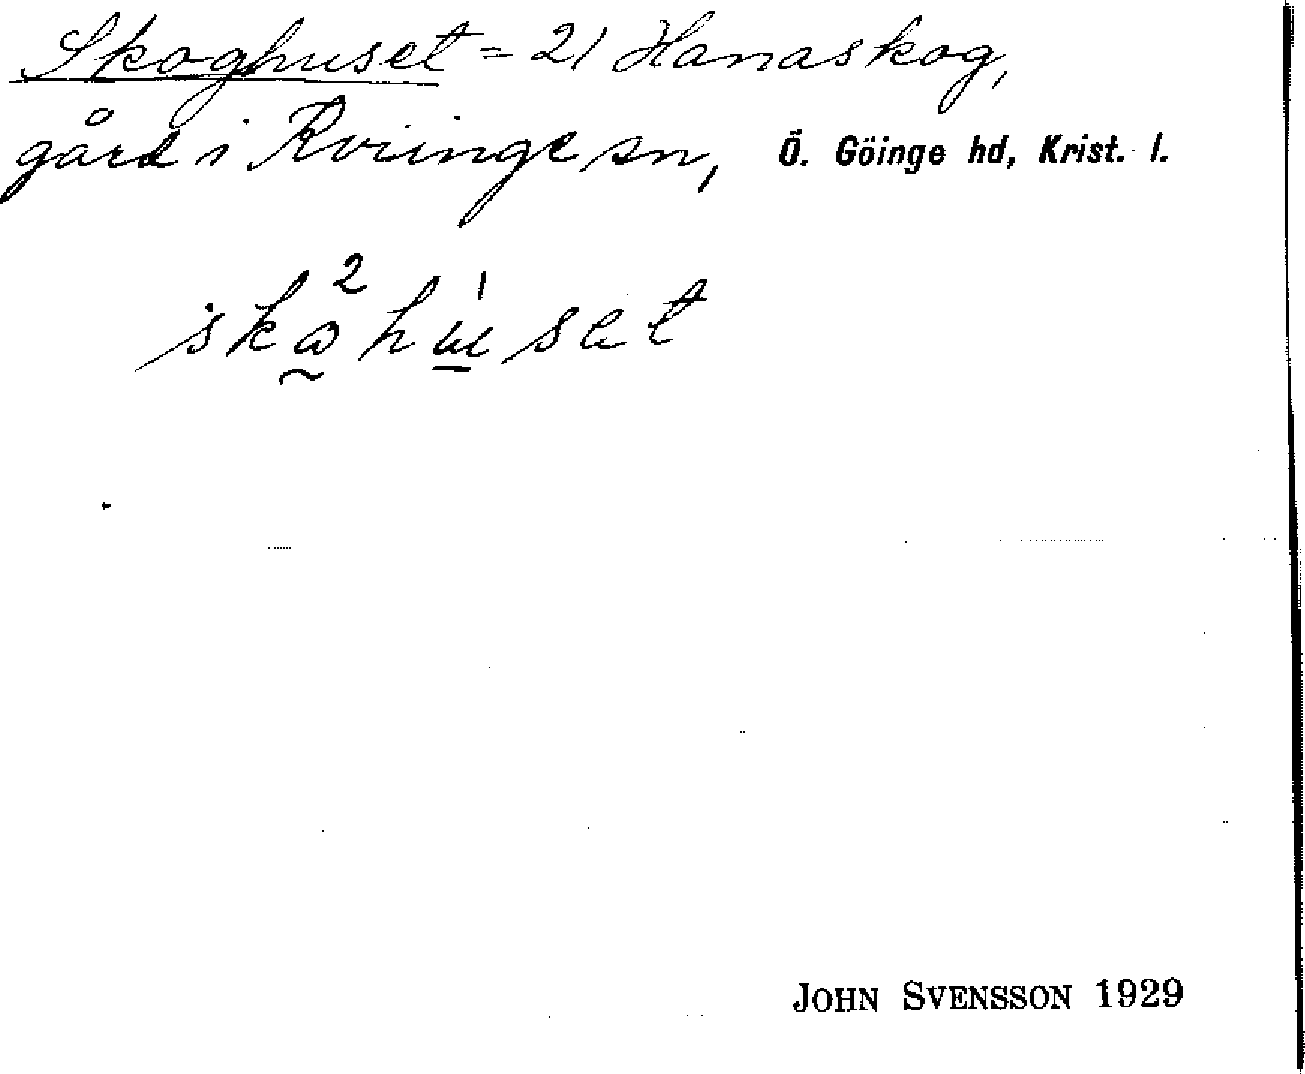 Skoghuset = 21 Hanaskog,
gård i Kviinge sn, Ö. Göinge hd, Krist. l.
JOHN SVENSSON 1929